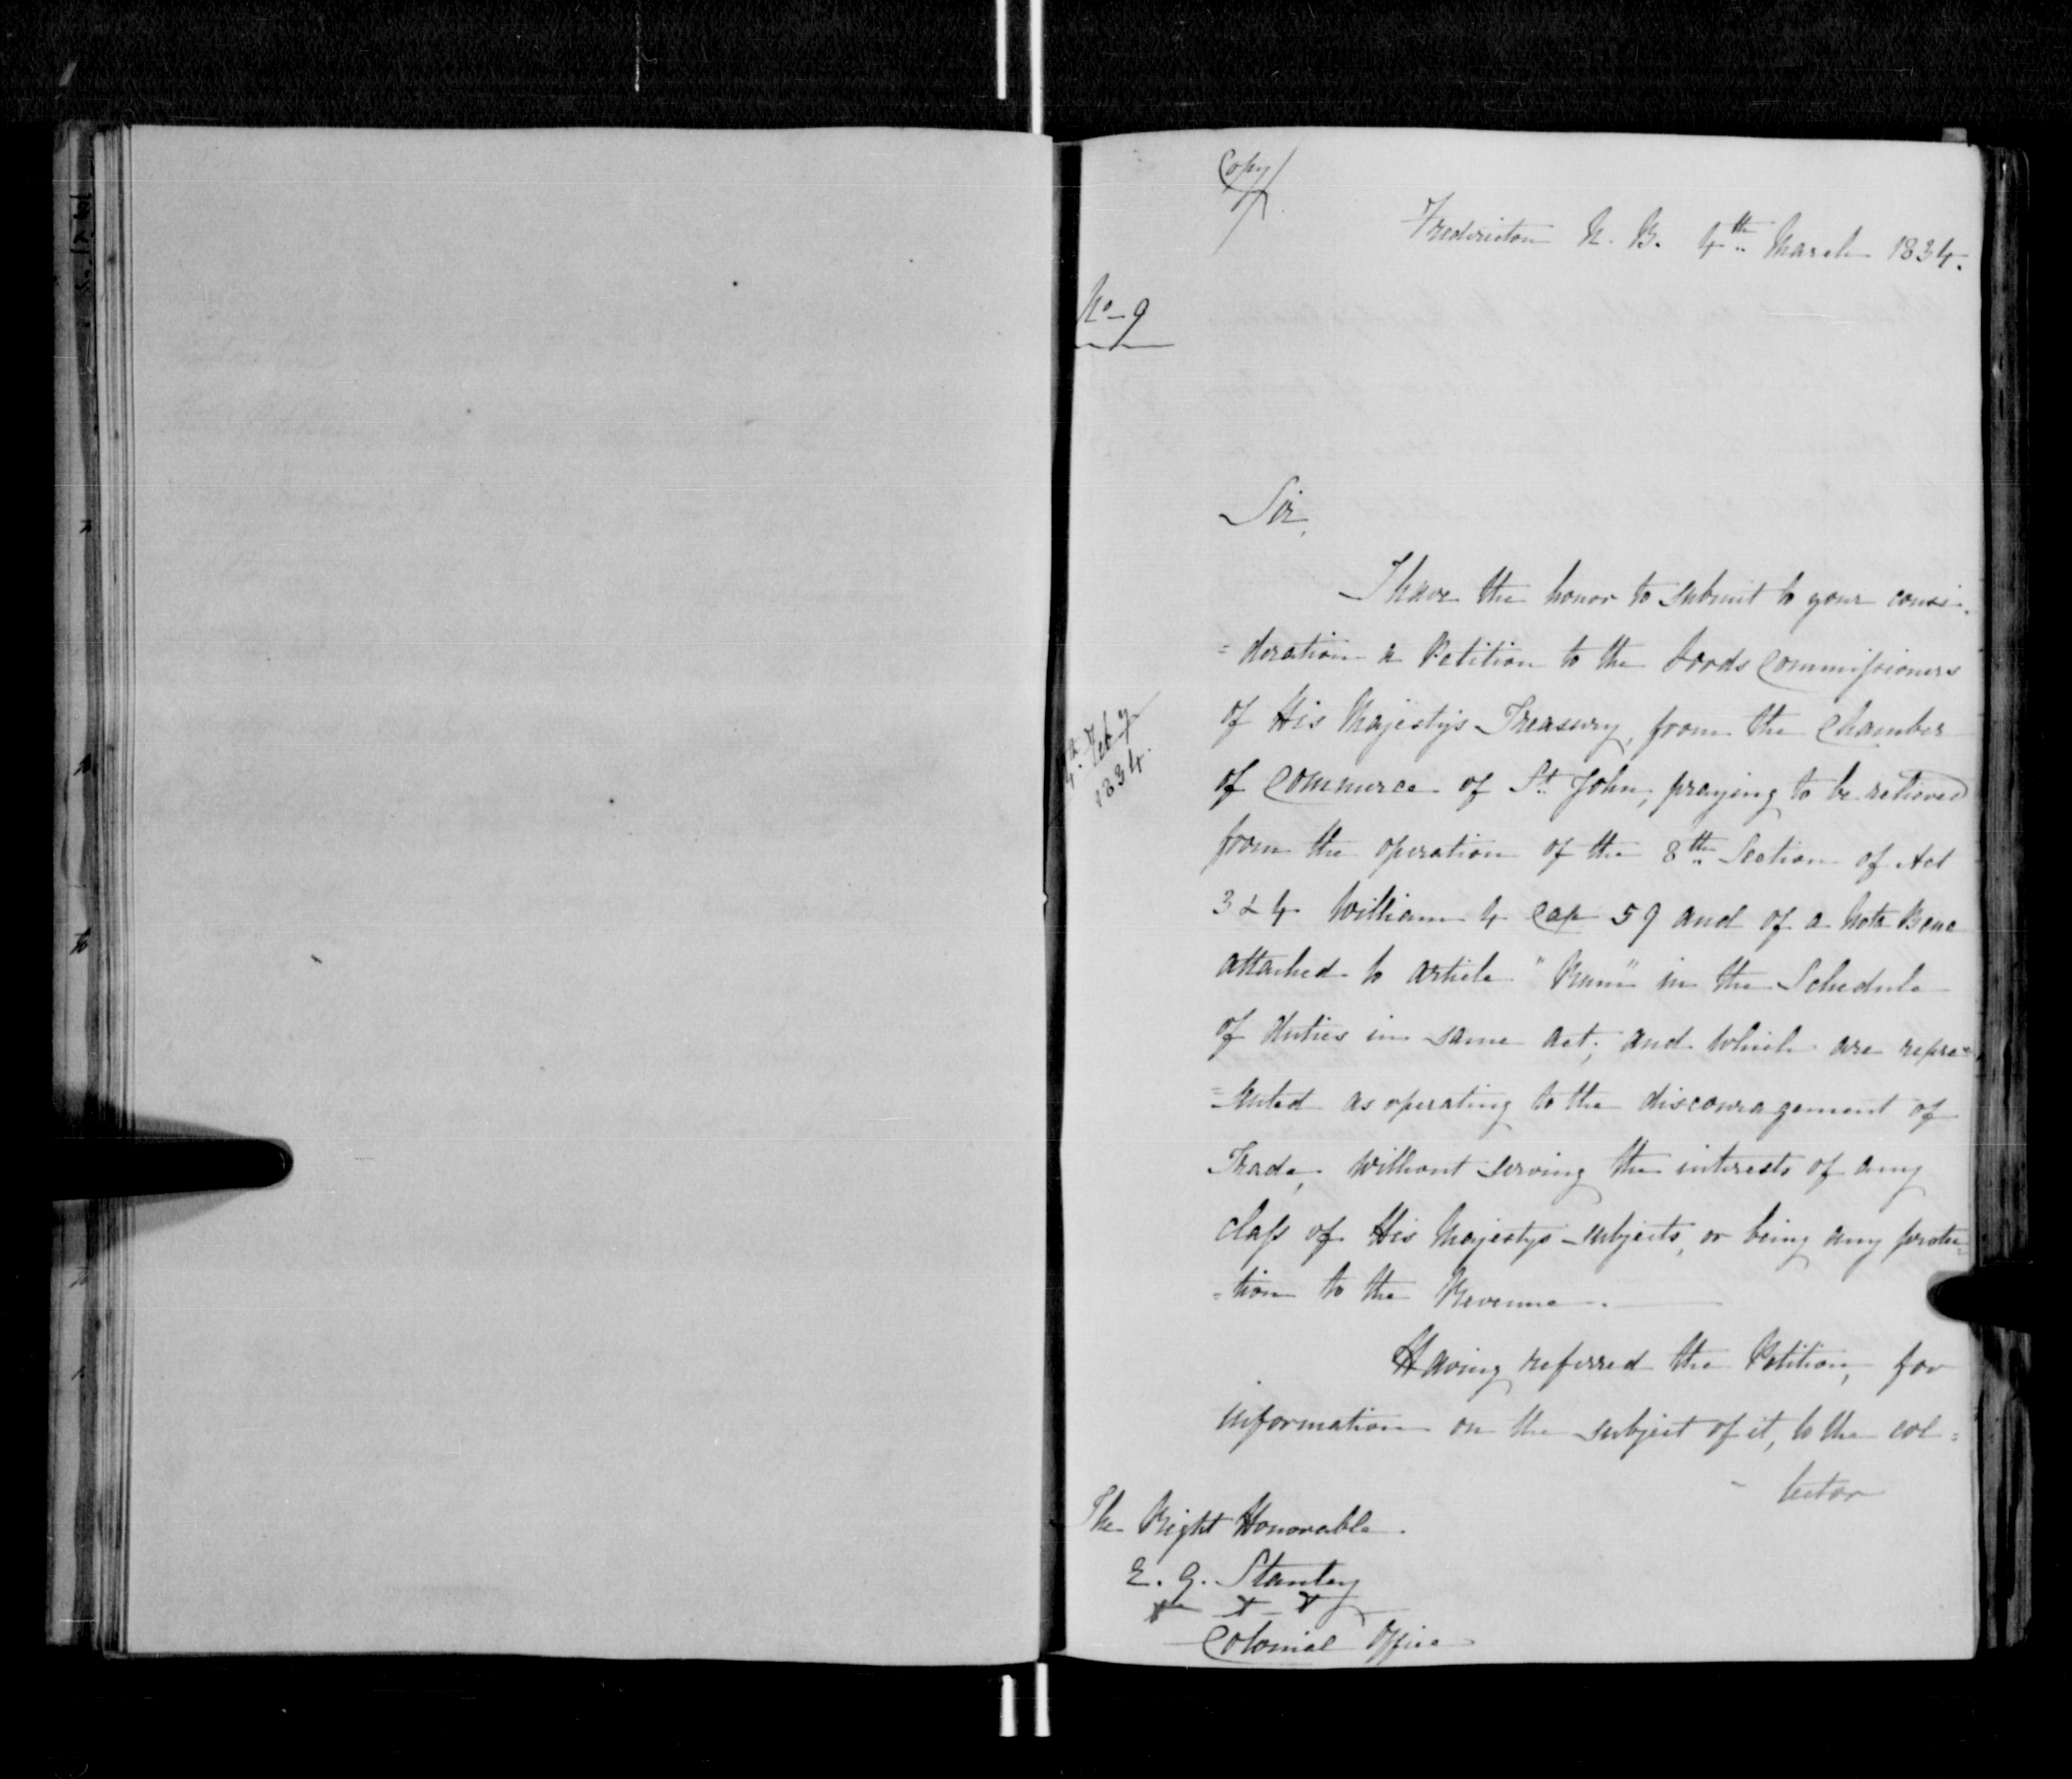 Copy
Fredericton N. B. 4th March 1834.
No 9
Sir,
I have the honor to submit to your consi-
=deration a Petition to the Lords Commissioners
of His Majesty's Treasury, from the Chamber
4th Feby
1834.
of Commerce of St John, praying to be relieved
from the operation of the 8th Section of Act
3 & 4 William 4 Cap 59 and of a Nota Bene
attached to article "Rum" in the Schedule
of duties in same act; and which are repre=
=sented as operating to the discouragement of
Trade, without serving the interests of any
class of His Majestys subjects, or being any protec=
=tion to the Revenue.
Having referred the Petition, for
information on the subject of it, to the col=
lector
The Right Honorable
E. G. Stanley
Colonial Office